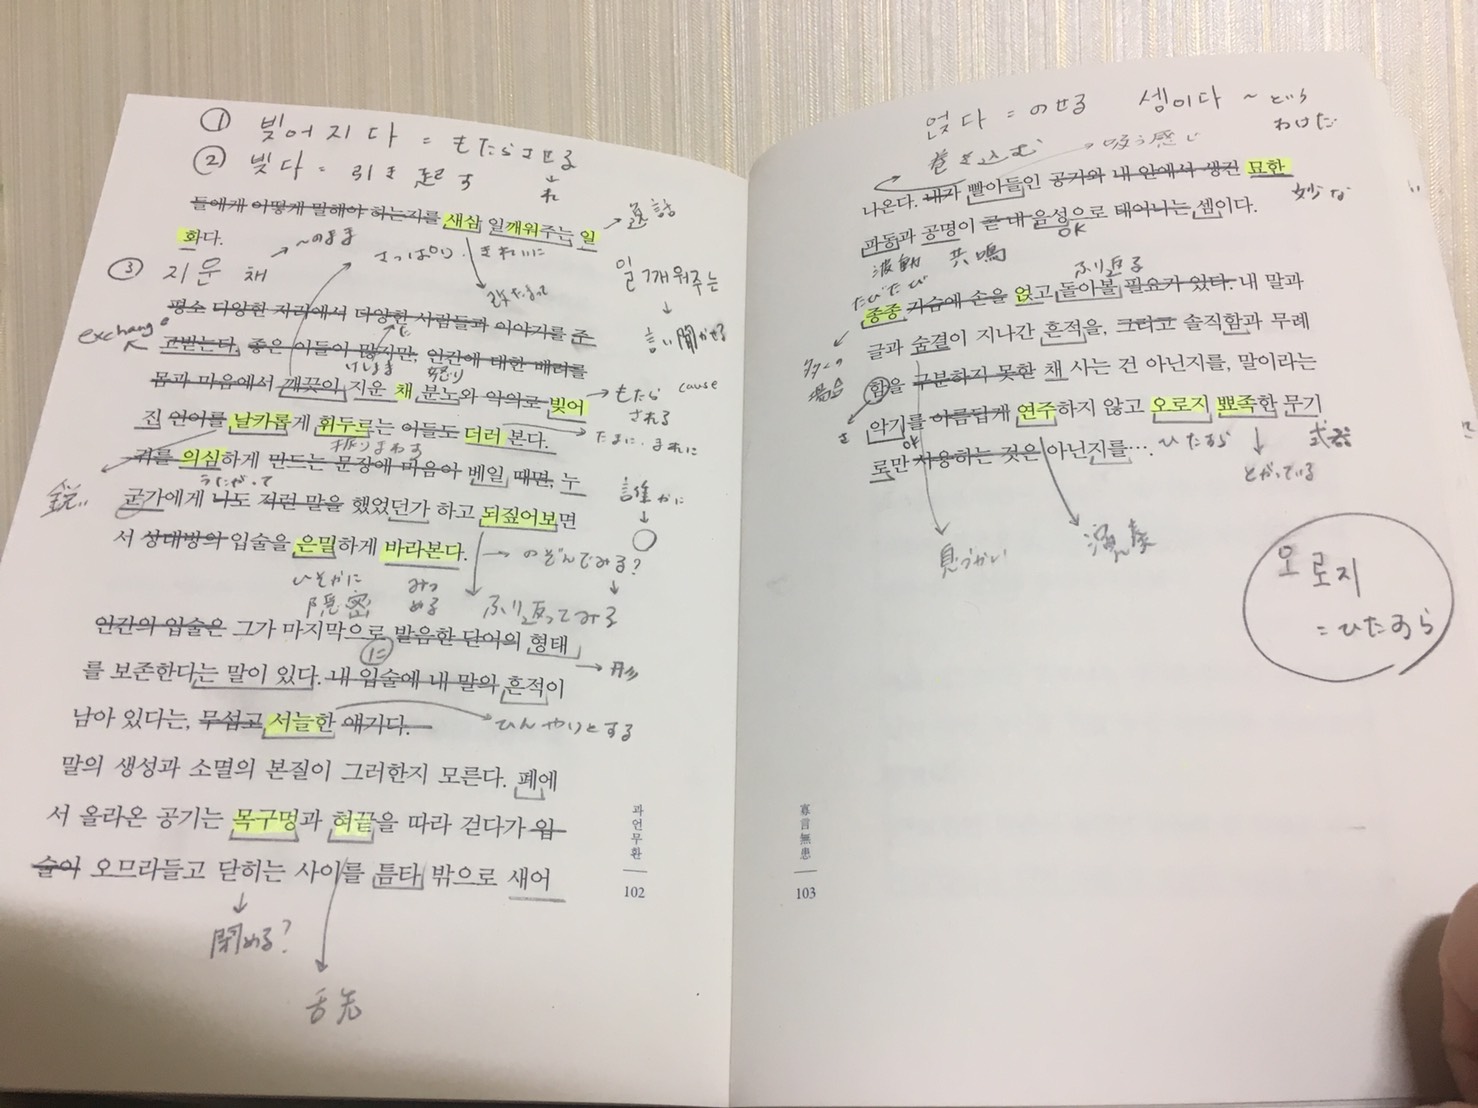 ① 빚어지다 = もたらさせる
↓
れ
② 빚다 = 引き起す
들에게 어떻게 말해야 하는지를 새삼 일깨워주는 일
화다.
→ 逸話
③ 지운 채
→ ~のまま
さっぱり・きれいに
改たまって
일깨워주는
↓
言い聞かせる
평소 다양한 자리에서 다양한 사람들과 이야기를 주
고받는다. 좋은 이들이 많지만, 인간에 대한 배려를
exchange
몸과 마음에서 깨끗이 지운 채 분노와 악의로 빚어
怒り
もたら
される
cause
진 언어를 날카롭게 휘두르는 이들도 더러 본다.
振りまわす
たまに、まれに
귀를 의심하게 만드는 문장에 마음이 베일 때면, 누
うたがって
鋭い
군가에게 나도 저런 말을 했었던가 하고 되짚어보면
誰かに
↓
○
서 상대방의 입술을 은밀하게 바라본다.
→ のぞんでみる?
ひそかに
隠密
みつ
める
ふり返ってみる
인간의 입술은 그가 마지막으로 발음한 단어의 형태
に
→ 形
를 보존한다는 말이 있다. 내 입술에 내 말의 흔적이
남아 있다는, 무섭고 서늘한 얘기다.
ひんやりとする
말의 생성과 소멸의 본질이 그러한지 모른다. 폐에
서 올라온 공기는 목구멍과 혀끝을 따라 걷다가 입
술이 오므라들고 닫히는 사이를 틈타 밖으로 새어
閉める?
舌先
과언무환
102
얹다 = のせる 셈이다 ~ という
わけだ
巻き込む
→ 吸う感じ
나온다. 내가 빨아들인 공기와 내 안에서 생긴 묘한
妙な
파동과 공명이 곧 내 음성으로 태어나는 셈이다.
波動 共鳴
OK
ふり返る
たびたび
종종 가슴에 손을 얹고 돌아볼 필요가 있다. 내 말과
글과 숨결이 지나간 흔적을, 그리고 솔직함과 무례
多くの
場合
함을 구분하지 못한 채 사는 건 아닌지를, 말이라는
악기를 아름답게 연주하지 않고 오로지 뾰족한 무기
さ
ひたすら
武器
로만 사용하는 것은 아닌지를….
とがっている
息づかい
演奏
오로지
= ひたすら
寡言無患
103